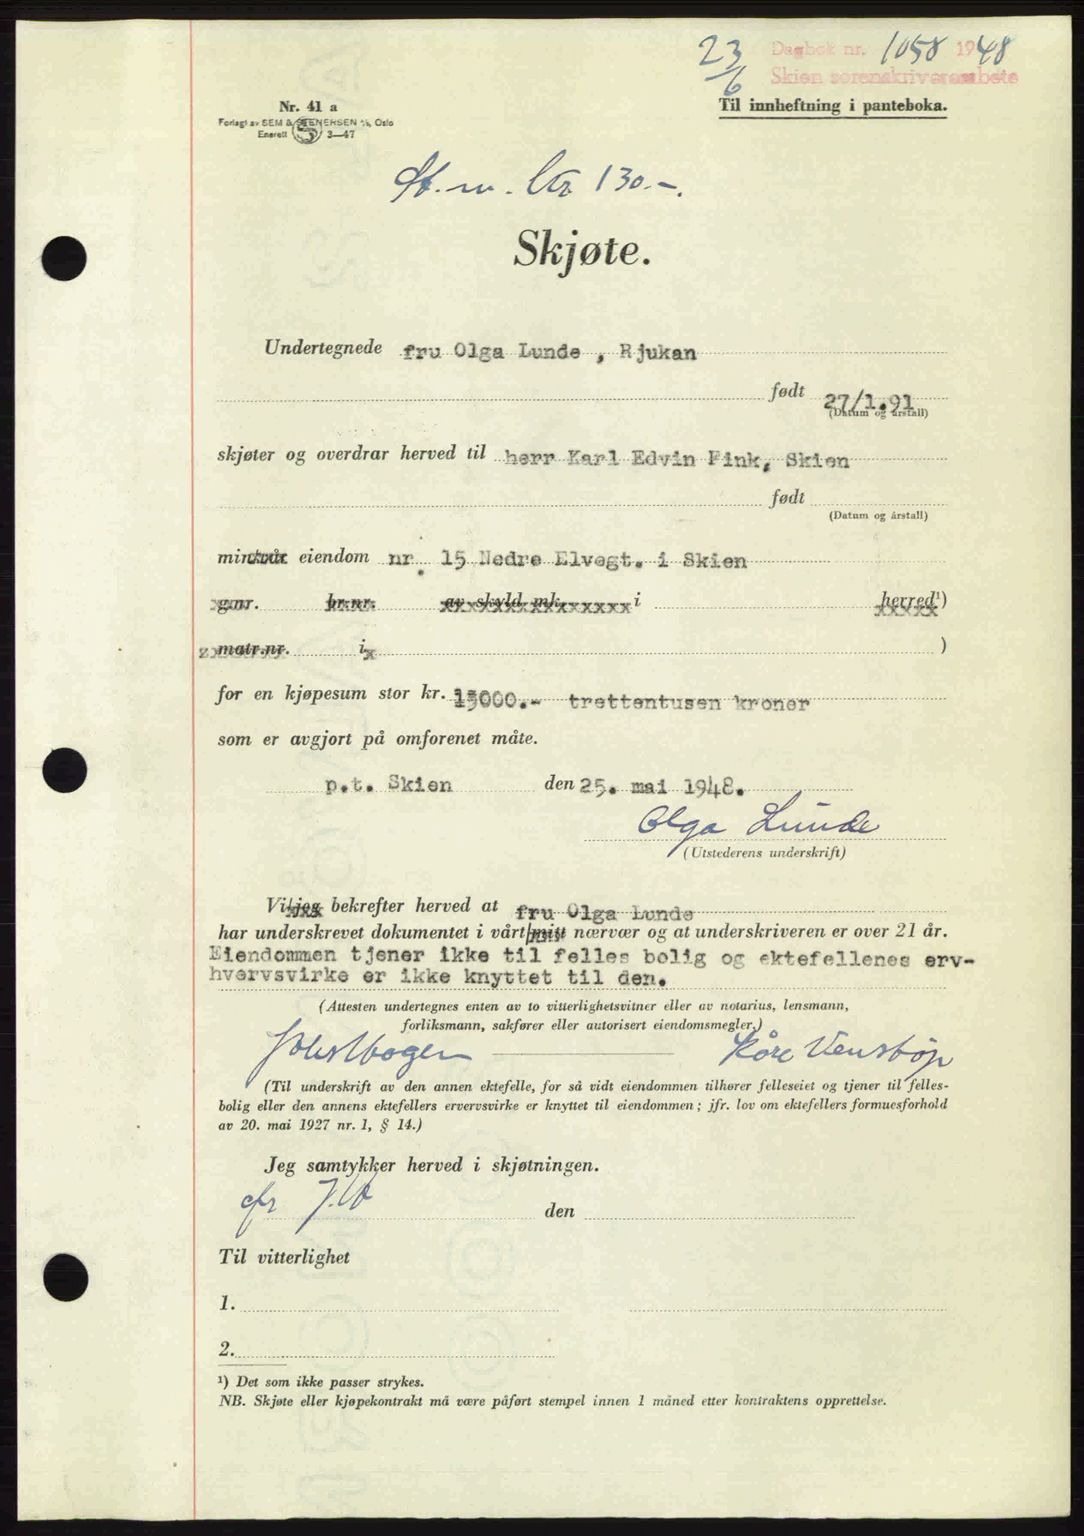 23/6 Dagbok nr. 1058 1948
Skien sorenskriverembete
Nr. 41 a
Forlagt av SEM & STENERSEN A/S, Oslo
Enerett S 3—47
Til innheftning i panteboka.
St. m. kr 130.-.
Skjøte.
Undertegnede fru Olga Lunde , Rjukan
født 27/1.91
(Datum og årstall)
skjøter og overdrar herved til herr Karl Edvin Fink, Skien
født
(Datum og årstall)
min eiendom nr. 15 Nedre Elvegt. i Skien
g.nr. br.nr. av skyld mk. i herred¹)
matr.nr. i )
for en kjøpesum stor kr. 13000.- trettentusen kroner
som er avgjort på omforenet måte.
p.t. Skien den 25. mai 1948.
Olga Lunde
(Utstederens underskrift)
Vi/jeg bekrefter herved at fru Olga Lunde
har underskrevet dokumentet i vårt/mitt nærvær og at underskriveren er over 21 år.
Eiendommen tjener ikke til felles bolig og ektefellenes erv-
hvervsvirke er ikke knyttet til den.
(Attesten undertegnes enten av to vitterlighetsvitner eller av notarius, lensmann,
forliksmann, sakfører eller autorisert eiendomsmegler.)
Kåre Venstøp
(Til underskrift av den annen ektefelle, for så vidt eiendommen tilhører felleseiet og tjener til felles-
bolig eller den annens ektefellers ervervsvirke er knyttet til eiendommen; jfr. lov om ektefellers formuesforhold
av 20. mai 1927 nr. 1, § 14.)
Jeg samtykker herved i skjøtningen.
den
Til vitterlighet
1.
2.
¹) Det som ikke passer strykes.
NB. Skjøte eller kjøpekontrakt må være påført stempel innen 1 måned etter kontraktens opprettelse.